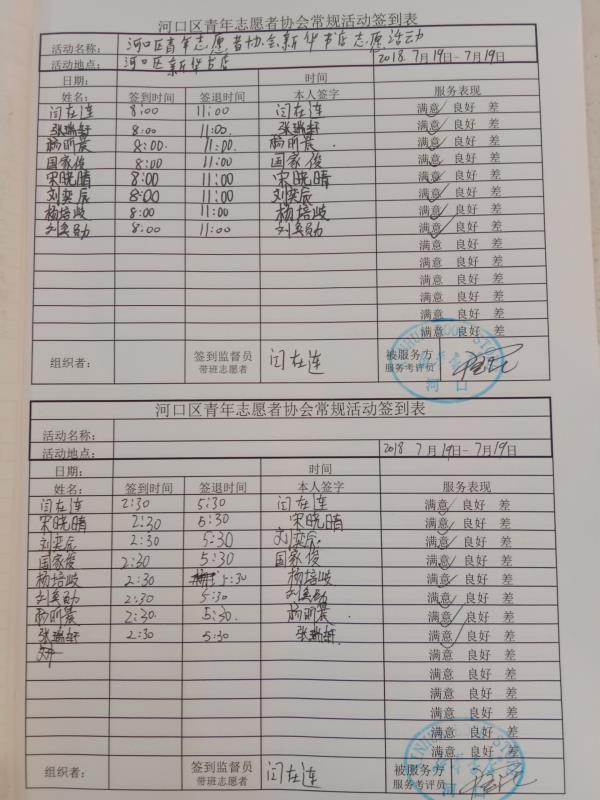 河口区青年志愿者协会常规活动签到表
活动名称: 河口区青年志愿者协会新华书店志愿活动
活动地点: 河口区新华书店 2018 7月19日-7月19日
日期: 时间
姓名: 签到时间 签退时间 本人签字 服务表现
闫在连 8:00 11:00 闫在连 满意 良好 差
张瑞轩 8:00 11:00. 张瑞轩 满意 良好 差
杨明晨 8:00. 11:00. 杨明晨. 满意 良好 差
国家俊 8:00 11:00 国家俊 满意 良好 差
宋晓晴 8:00 11:00 宋晓晴 满意 良好 差
刘奕辰 8:00 11:00 刘奕辰 满意 良好 差
杨培歧 8:00 11:00 杨培歧 满意 良好 差
刘奚勋 8:00 11:00 刘奚勋 满意 良好 差
满意 良好 差
满意 良好 差
满意 良好 差
满意 良好 差
满意 良好 差
满意 良好 差
组织者: 签到监督员 闫在连 被服务方
带班志愿者 服务考评员
河口
河口区青年志愿者协会常规活动签到表
活动名称:
活动地点: 2018 7月19日-7月19日
日期: 时间
姓名: 签到时间 签退时间 本人签字 服务表现
闫在连 2:30 5:30 闫在连 满意 良好 差
宋晓晴 2:30 5:30 宋晓晴 满意 良好 差
刘奕辰 2:30 5:30 刘奕辰. 满意 良好 差
国家俊 2:30 5:30 国家俊 满意 良好 差
杨培歧 2:30 5:30 杨培歧 满意 良好 差
刘奚勋 2:30 5:30 刘奚勋 满意 良好 差
杨明晨 2:30. 5:30. 杨明晨. 满意 良好 差
张瑞轩 2:30 5:30 张瑞轩 满意 良好 差
满意 良好 差
满意 良好 差
满意 良好 差
满意 良好 差
满意 良好 差
满意 良好 差
组织者: 签到监督员 闫在连 被服务方
带班志愿者 服务考评员